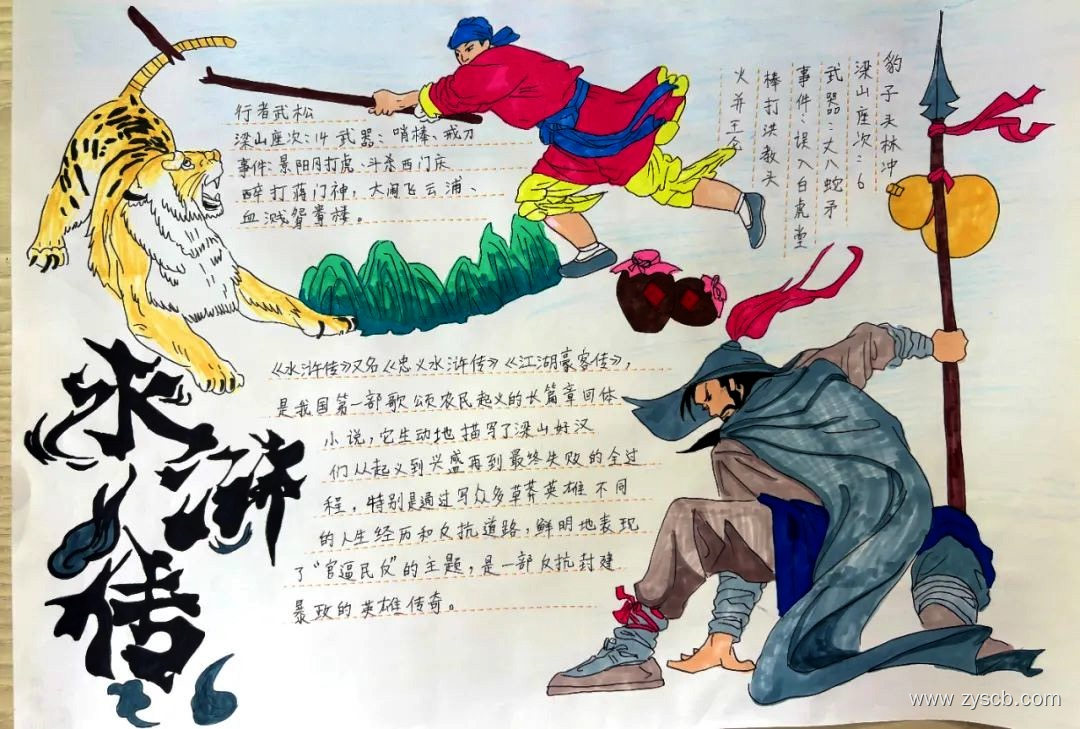 行者武松
梁山座次:14 武器:哨棒、戒刀
事件:景阳冈打虎、斗杀西门庆
醉打蒋门神,大闹飞云浦、
血溅鸳鸯楼。
豹子头林冲
梁山座次:6
武器:丈八蛇矛
事件:误入白虎堂
棒打洪教头
火并王伦
水浒传
《水浒传》又名《忠义水浒传》《江湖豪客传》,
是我国第一部歌颂农民起义的长篇章回体
小说,它生动地描写了梁山好汉
们从起义到兴盛再到最终失败的全过
程,特别是通过写众多草莽英雄不同
的人生经历和反抗道路,鲜明地表现
了“官逼民反”的主题,是一部反抗封建
暴政的英雄传奇。
www.zyscb.com